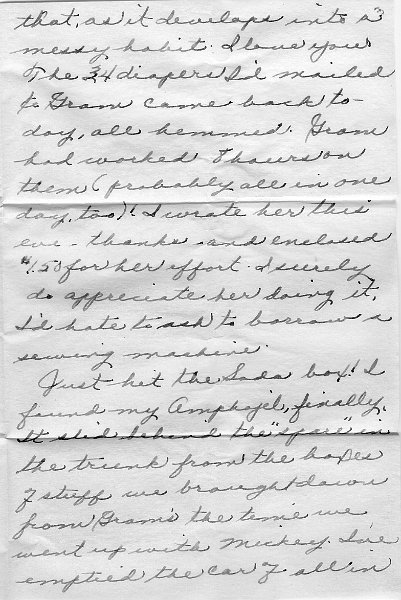 that, as it develops into a
messy habit. I love you
The 34 diapers I'd mailed
to Gram came back to-
day, all hemmed. Gram
had worked 8 hours on
them (probably all in one
day, too)! I wrote her this
eve - thanks and enclosed
$1.50 for her effort. I surely
do appreciate her doing it,
I'd hate to ask to borrow a
sewing machine.
Just hit the Soda box! I
found my Amphojel, finally.
It slid behind the "spare" in
the trunk from the boxes
of stuff we brought down
from Gram's the time we
went up with Mickey. I've
emptied the car of all in